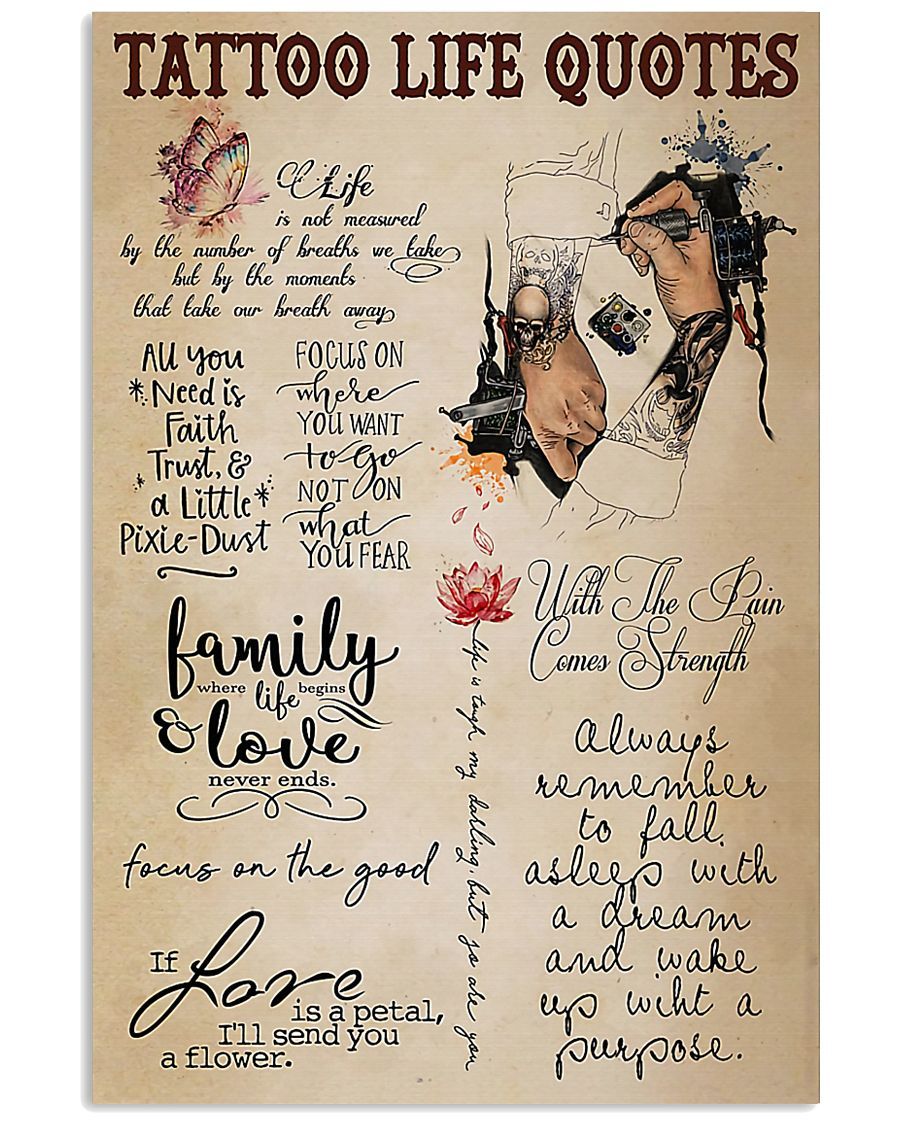 TATTOO LIFE QUOTES
Life
is not measured
by the number of breaths we take
but by the moments
that take our breath away
All you
Need is
Faith
Trust, &
a Little
Pixie-Dust
FOCUS ON
where
YOU WANT
to go
NOT ON
what
YOU FEAR
family
where life begins
& love
never ends.
focus on the good
If Love
is a petal,
I'll send you
a flower.
life is tough my darling, but so are you
With The Pain
Comes Strength
Always
remember
to fall
asleep with
a dream
and wake
up wiht a
purpose.